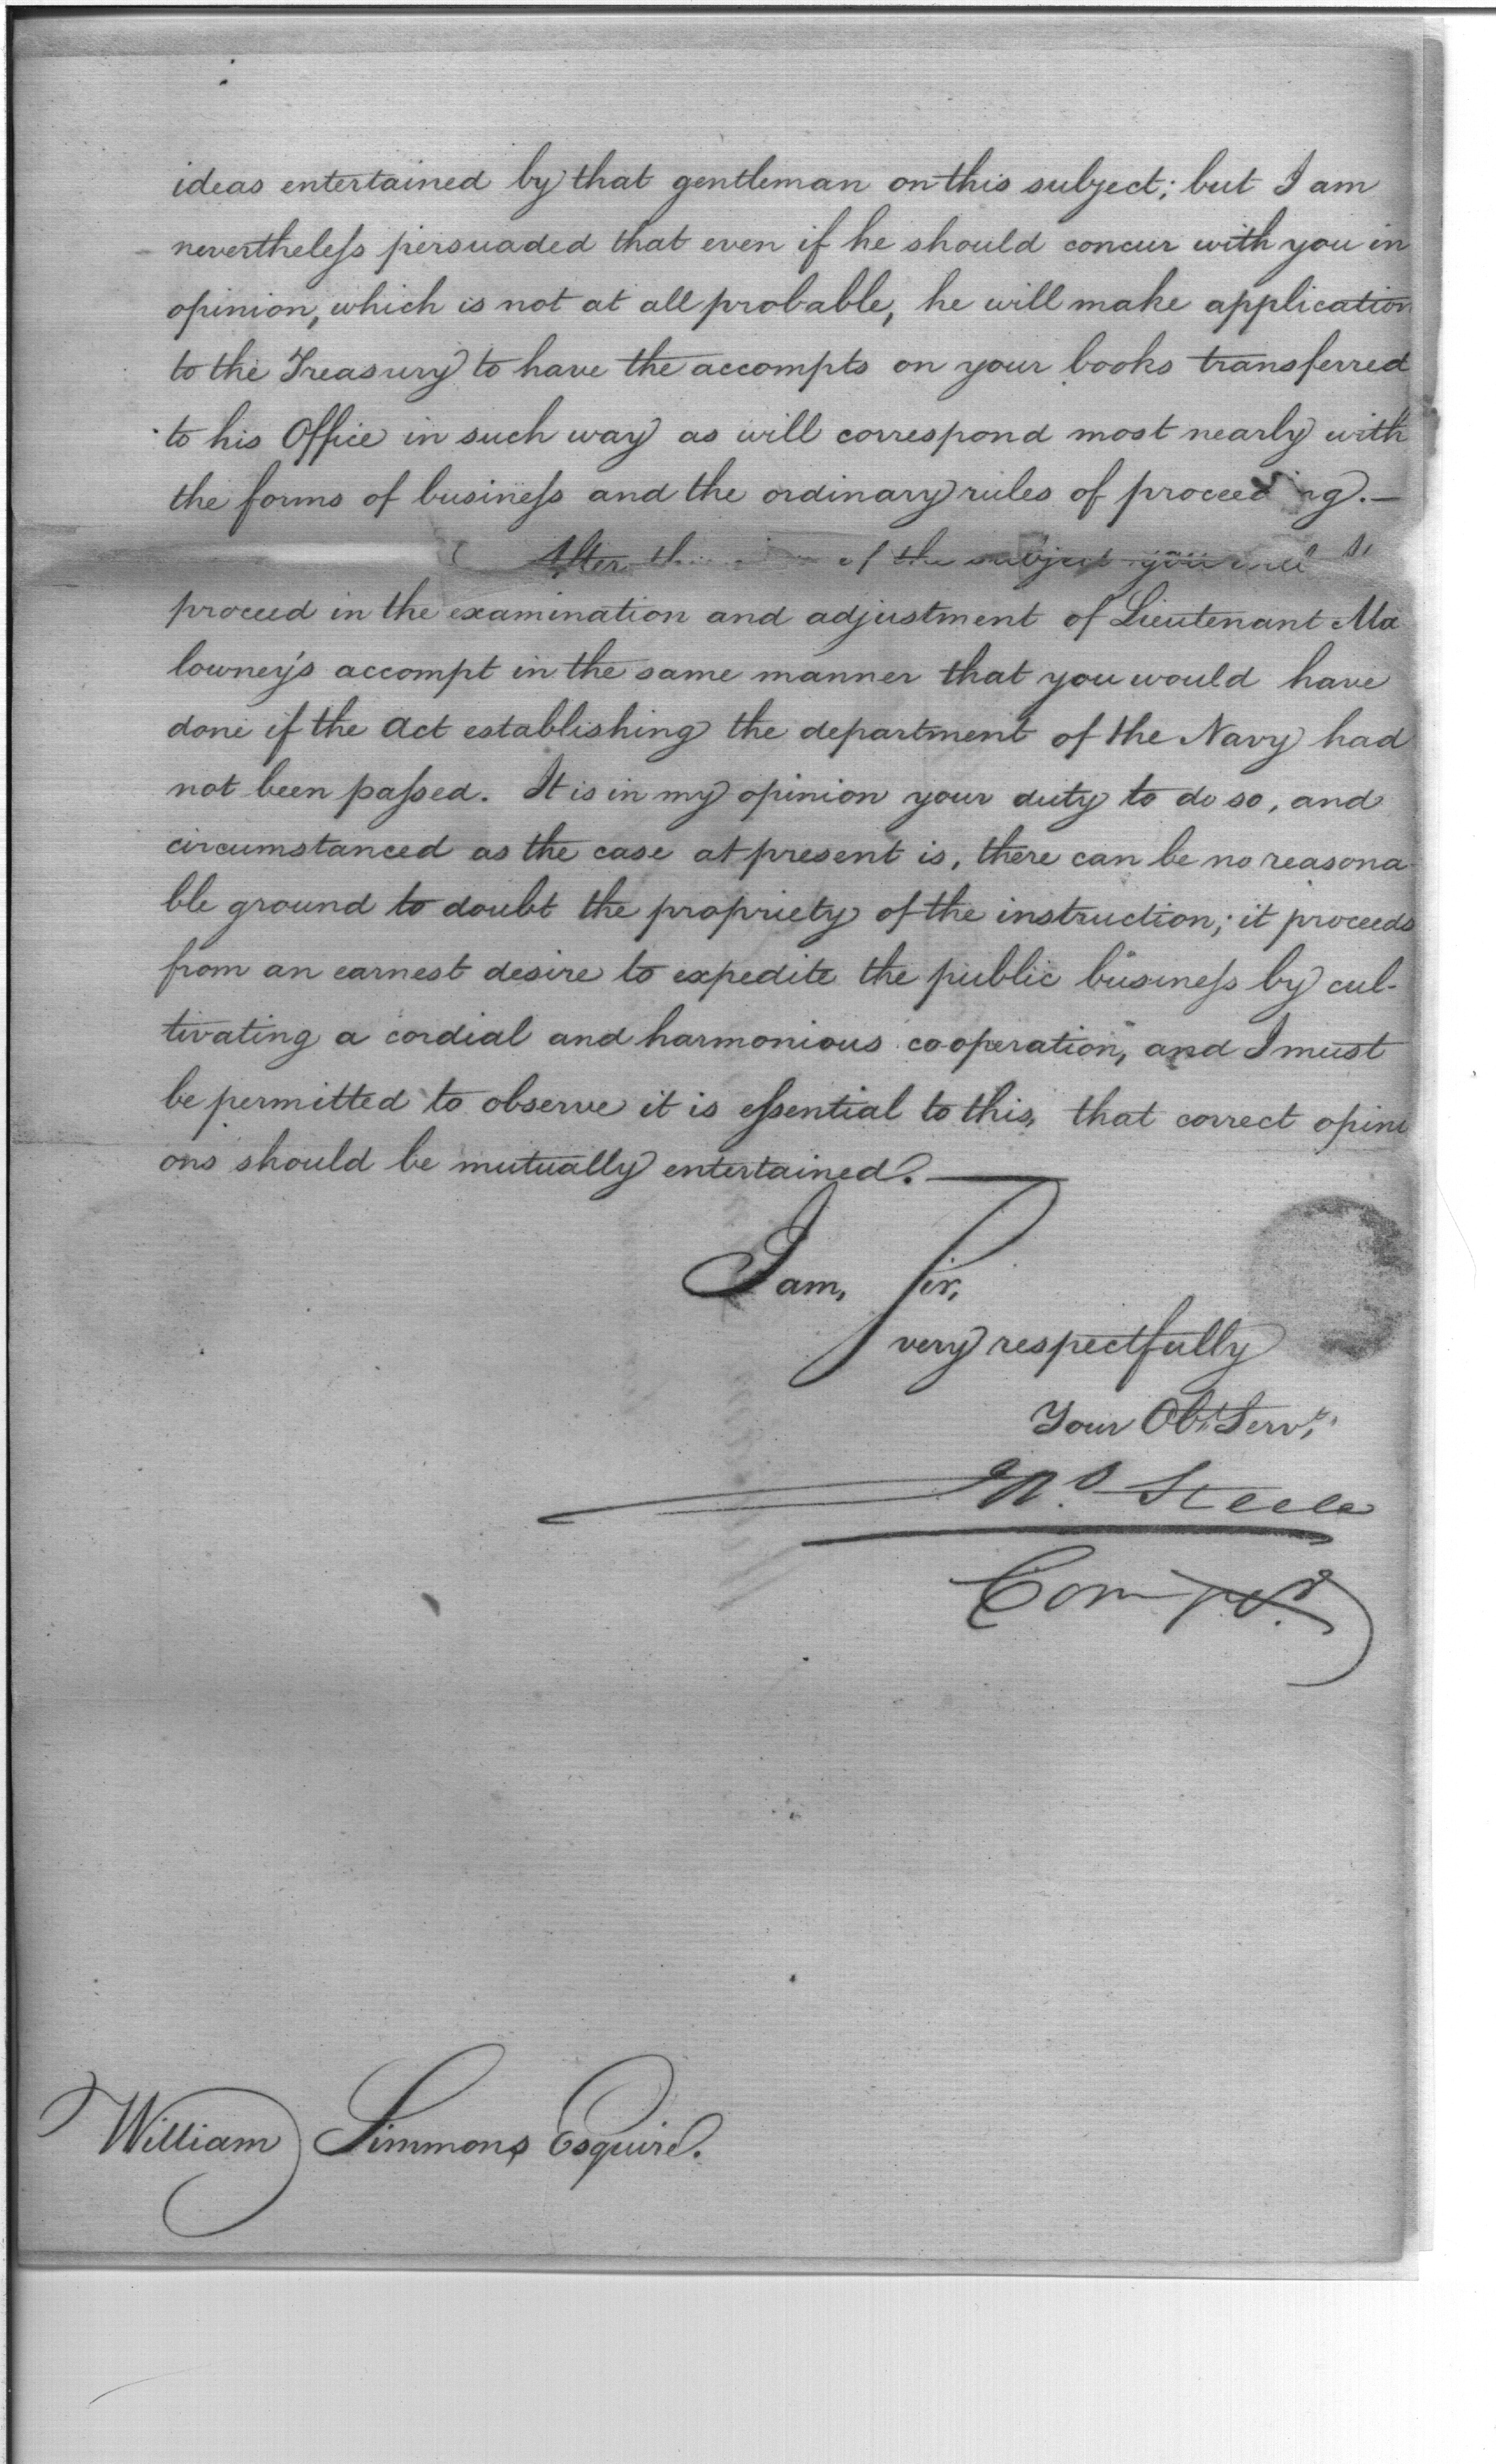 ideas entertained by that gentleman on this subject; but I am
nevertheleſs persuaded that even if he should concur with you in
opinion, which is not at all probable, he will make application
to the Treasury to have the accompts on your books transferred
to his Office in such way as will correspond most nearly with
the forms of busineſs and the ordinary rules of proceeding.—
After of the subject you will
proceed in the examination and adjustment of Lieutenant Ma
lowney's accompt in the same manner that you would have
done if the Act establishing the department of the Navy had
not been paſsed. It is in my opinion your duty to do so, and
circumstanced as the case at present is, there can be no reasona
ble ground to doubt the propriety of the instruction; it proceeds
from an earnest desire to expedite the public busineſs by cul-
tivating a cordial and harmonious "co-operation", and I must
be permitted to observe it is eſsential to this, that correct opini
ons should be mutually entertained.—
I am, Sir,
very respectfully
Your Obt. Servt.
Jno. Steele
Compr.
William Simmons Esquire.